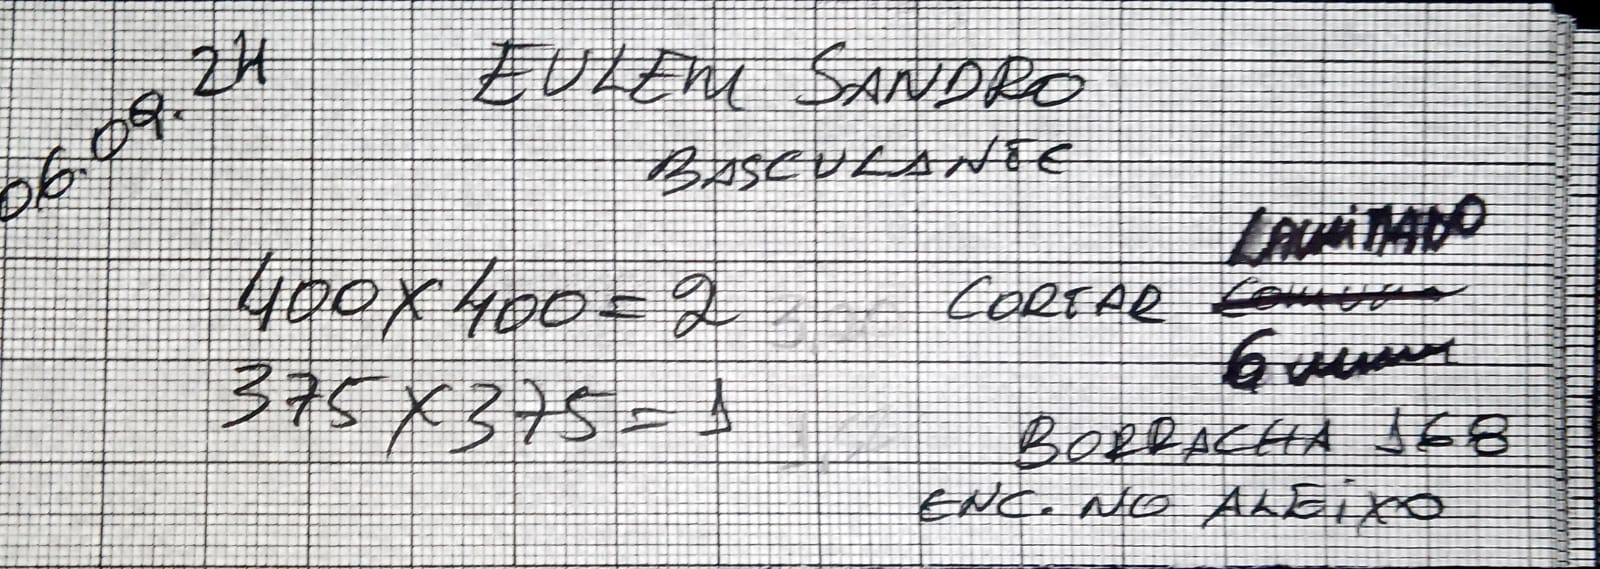 06.09.24
EULEM SANDRO
BASCULANTE
400X400=2
375X375=1
LAMINADO
CORTAR
6mm
BORRACHA 168
ENC. NO ALEIXO